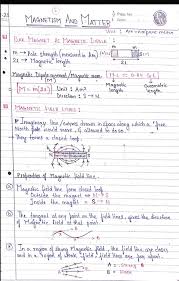 MAGNETISM AND MATTER
BAR MAGNET & MAGNETIC DIPOLE:
m → Pole strength (measured in Am)
2l → Magnetic length
Magnetic Dipole moment / Magnetic moment
M = m(2l)
Unit: Am²
Direction: S → N
Magnetic length
Geometric length
MAGNETIC FIELD LINES:
Imaginary line/curves drawn in space along which a free
North Pole would move, if allowed to do so.
They forms a closed loop.
Properties of Magnetic field line.
Magnetic field line form closed loop.
Outside the magnet → N → S
Inside the magnet → S → N
The tangent at any point on the field lines, gives the direction
of Magnetic field at that point.
In a region of strong Magnetic field, the field line are closer
and in a region of weak field, field lines are far apart.
A → Strong B
B → Weak